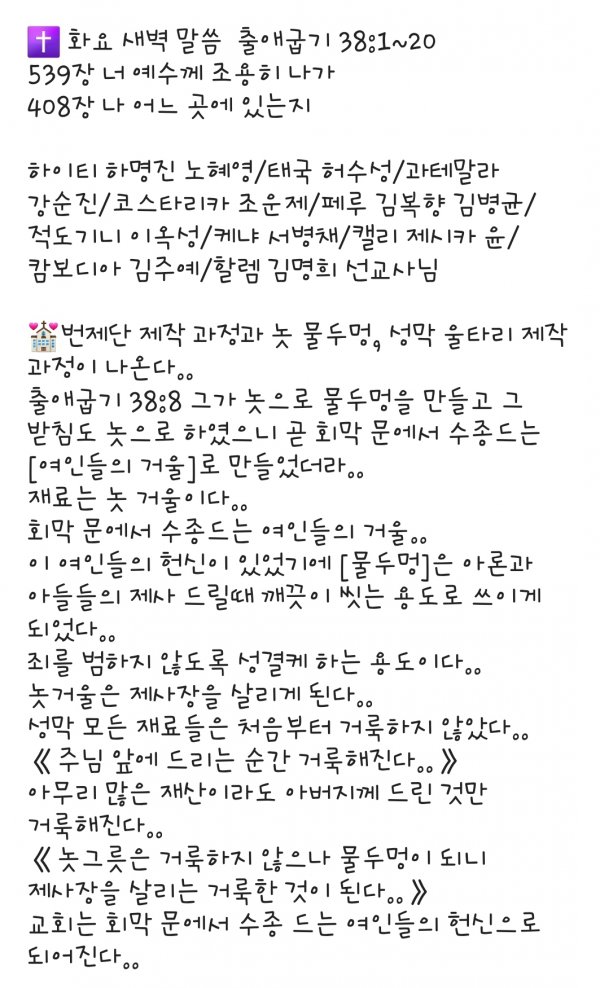 ✝️ 화요 새벽 말씀 출애굽기 38:1~20
539장 너 예수께 조용히 나가
408장 나 어느 곳에 있는지
하이티 하명진 노혜영/태국 허수성/과테말라
강순진/코스타리카 조운제/페루 김복향 김병균/
적도기니 이옥성/케냐 서병채/캘리 제시카 윤/
캄보디아 김주예/할렘 김명희 선교사님
💒번제단 제작 과정과 놋 물두멍, 성막 울타리 제작
과정이 나온다..
출애굽기 38:8 그가 놋으로 물두멍을 만들고 그
받침도 놋으로 하였으니 곧 회막 문에서 수종드는
[여인들의 거울]로 만들었더라..
재료는 놋 거울이다..
회막 문에서 수종드는 여인들의 거울..
이 여인들의 헌신이 있었기에 [물두멍]은 아론과
아들들의 제사 드릴때 깨끗이 씻는 용도로 쓰이게
되었다..
죄를 범하지 않도록 성결케 하는 용도이다..
놋거울은 제사장을 살리게 된다..
성막 모든 재료들은 처음부터 거룩하지 않았다..
《 주님 앞에 드리는 순간 거룩해진다..》
아무리 많은 재산이라도 아버지께 드린 것만
거룩해진다..
《 놋그릇은 거룩하지 않으나 물두멍이 되니
제사장을 살리는 거룩한 것이 된다..》
교회는 회막 문에서 수종 드는 여인들의 헌신으로
되어진다..